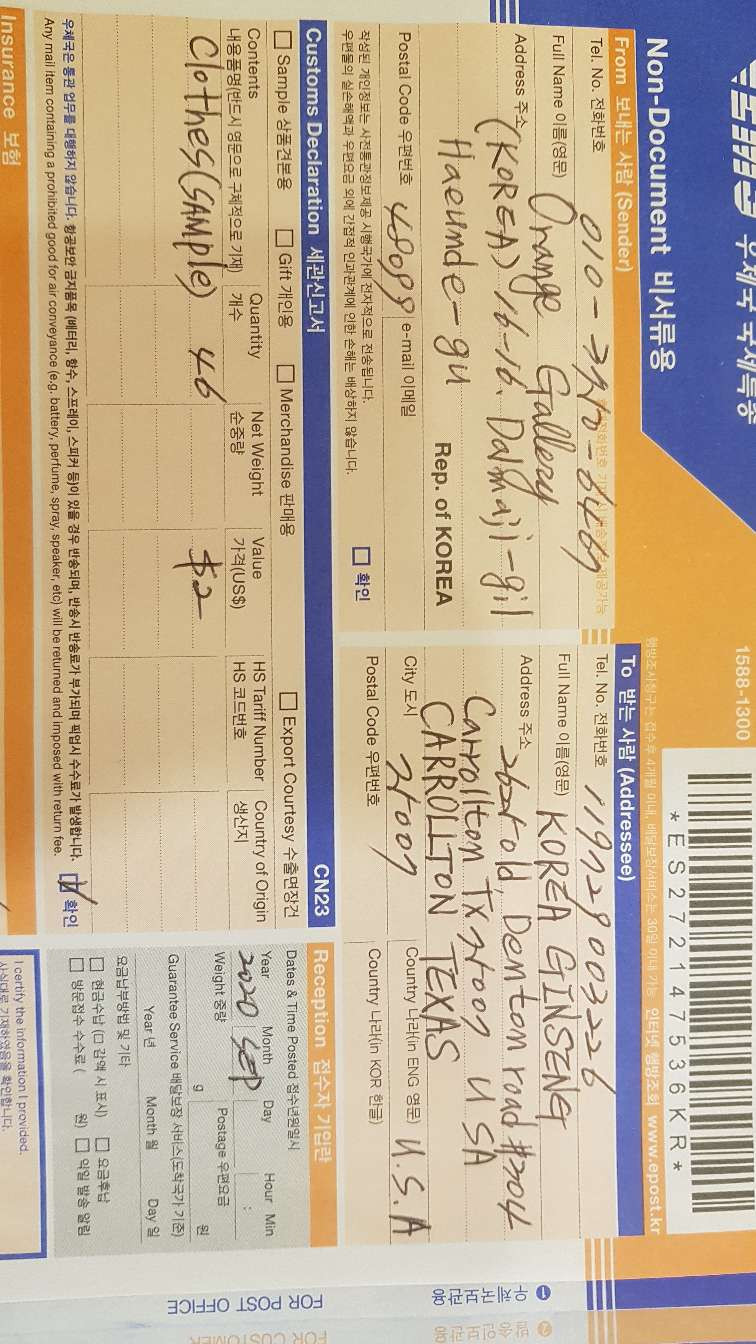 우체국 국제특송
Non-Document 비서류용
1588-1300
*ES272147536KR*
행방조사청구는 접수후 4개월 이내, 배달보장서비스는 30일 이내 가능 인터넷 행방조회 www.epost.kr
From 보내는 사람 (Sender)
Tel. No. 전화번호
Full Name 이름(영문) Orange Gallery
Address 주소 (KOREA) 16-16, Dalmaji-gil
Haeunde-gu
Rep. of KOREA
Postal Code 우편번호 48099 e-mail 이메일
작성된 개인정보는 사전통관정보제공 시행국가에 전자적으로 전송됩니다.
우편물의 실손해액과 우편요금 외에 간접적 인과관계에 인한 손해는 배상하지 않습니다.
확인
To 받는 사람 (Addressee)
Tel. No. 전화번호 119729003226
Full Name 이름(영문) KOREA GINSENG
Address 주소 2625 old, Demtom road #304
Carrollton TX 75007 USA
CARROLLTON TEXAS
City 도시 75007 Country 나라(in ENG 영문) U.S.A
Postal Code 우편번호 Country 나라(in KOR 한글)
Customs Declaration 세관신고서 CN23
Sample 상품견본용 Gift 개인용 Merchandise 판매용 Export Courtesy 수출면장건
Contents Quantity Net Weight Value HS Tariff Number Country of Origin
내용품명(반드시 영문으로 구체적으로 기재) 개수 순중량 가격(US$) HS 코드번호 생산지
Clothes(SAMPle) 46 $2
우체국은 통관 업무를 대행하지 않습니다. 항공보안 금지품목 (배터리, 향수, 스프레이, 스피커 등)이 있을 경우 반송되며, 반송시 반송료가 부가되며 픽업시 수수료가 발생합니다.
Any mail item containing a prohibited good for air conveyance (e.g. battery, perfume, spray, speaker, etc) will be returned and imposed with return fee.
확인
Insurance 보험
Reception 접수자 기입란
Dates & Time Posted 접수년원일시
Year Month Day Hour Min
2020 SEP :
Weight 중량 g Postage 우편요금 원
Guarantee Service 배달보장 서비스(도착국가 기준)
Year 년 Month 월 Day 일
요금납부방법 및 기타
현금수납 (□ 감액 시 표시) 요금후납
방문접수 수수료 ( 원) 익일 발송 알림
I certify the information I provided.
사실대로 기재하였음을 확인합니다.
❶ 우체국보관용 FOR POST OFFICE
❷ 발송인보관용 FOR CUSTOMER